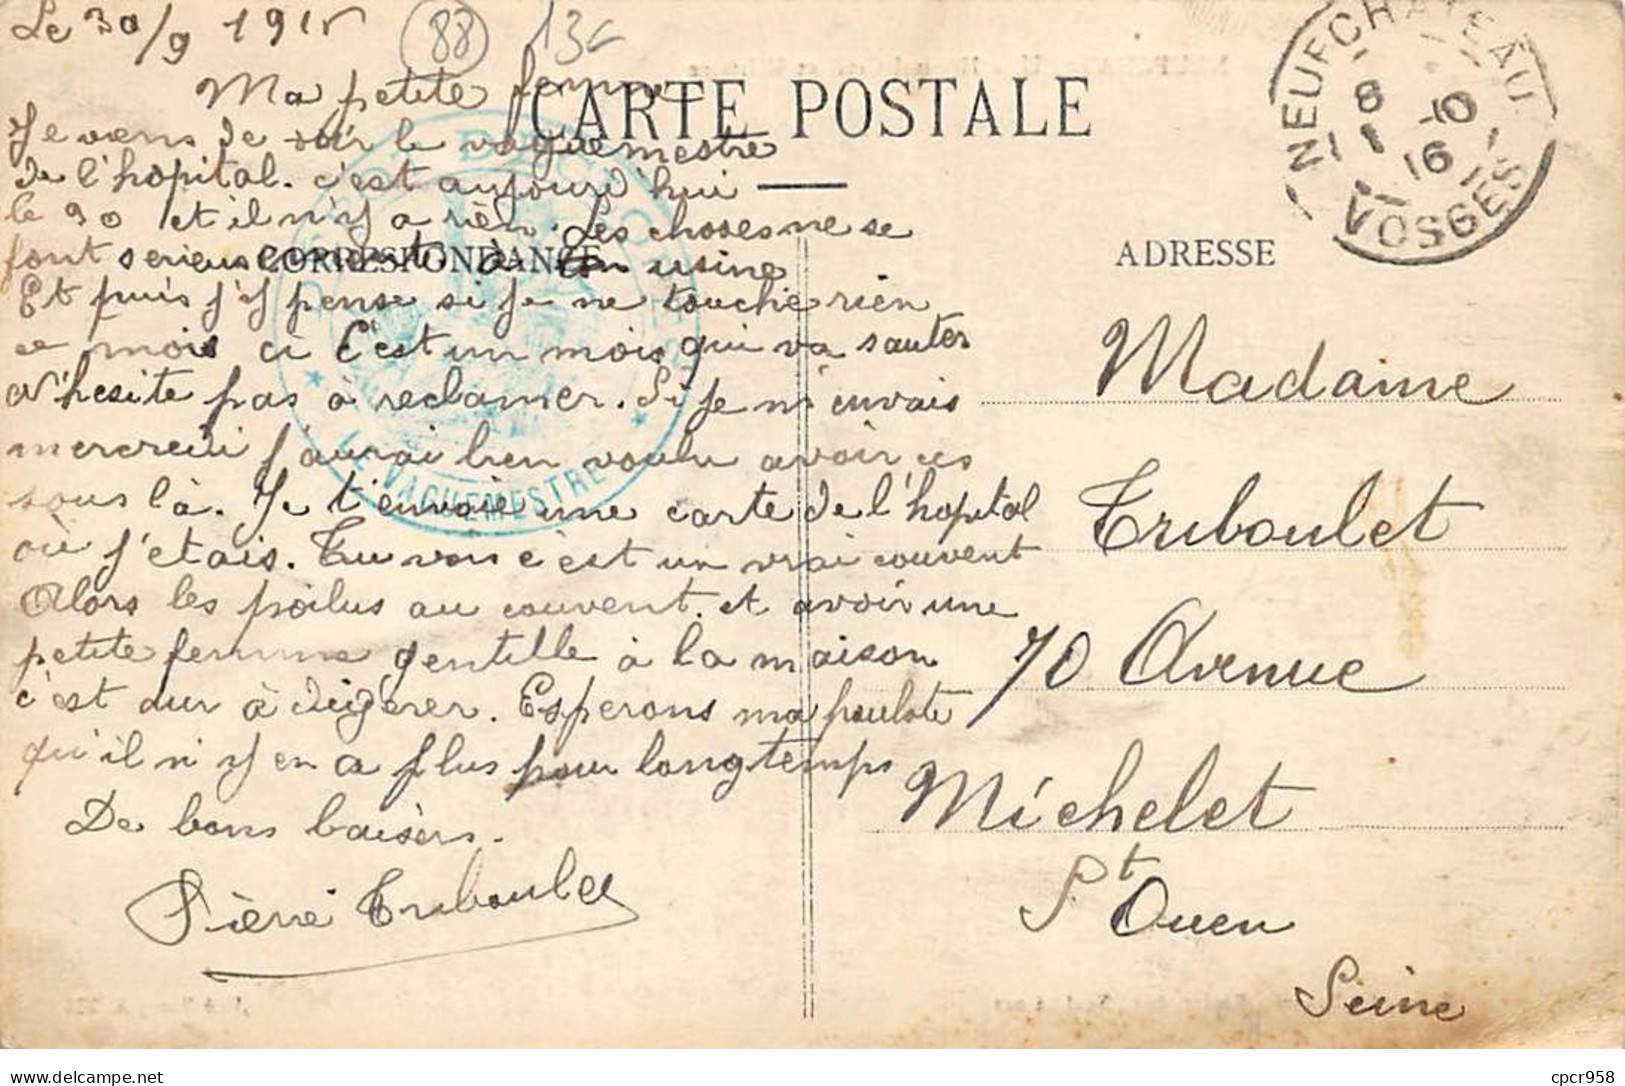 Le 30/9 191
88
13c
Ma petite femme
CARTE POSTALE
Je viens de voir le vaguemestre
de l'hopital. c'est aujourd'hui
le 30 et il n'y a rien. Les choses ne se
font serieusement à ton usine
CORRESPONDANCE
Et puis j'y pense si je ne touche rien
ce mois ci c'est un mois qui va sauter
N'hesite pas à reclamer. Si je m'envais
mercredi j'aurai bien voulu avoir ces
sous là. Je t'envoie une carte de l'hopital
où j'etais. Tu vois c'est un vrai couvent
Alors les poilus au couvent. et avoir une
petite femme gentille à la maison
c'est dur à digérer. Esperons ma poulote
qu'il n'y en a plus pour longtemps
De bons baisers.
Pierre Triboulet
LE VAGUEMESTRE
NEUFCHATEAU
8
1 10
16
VOSGES
ADRESSE
Madame
Triboulet
70 Avenue
Michelet
St Ouen
Seine
delcampe.net
cpcr958